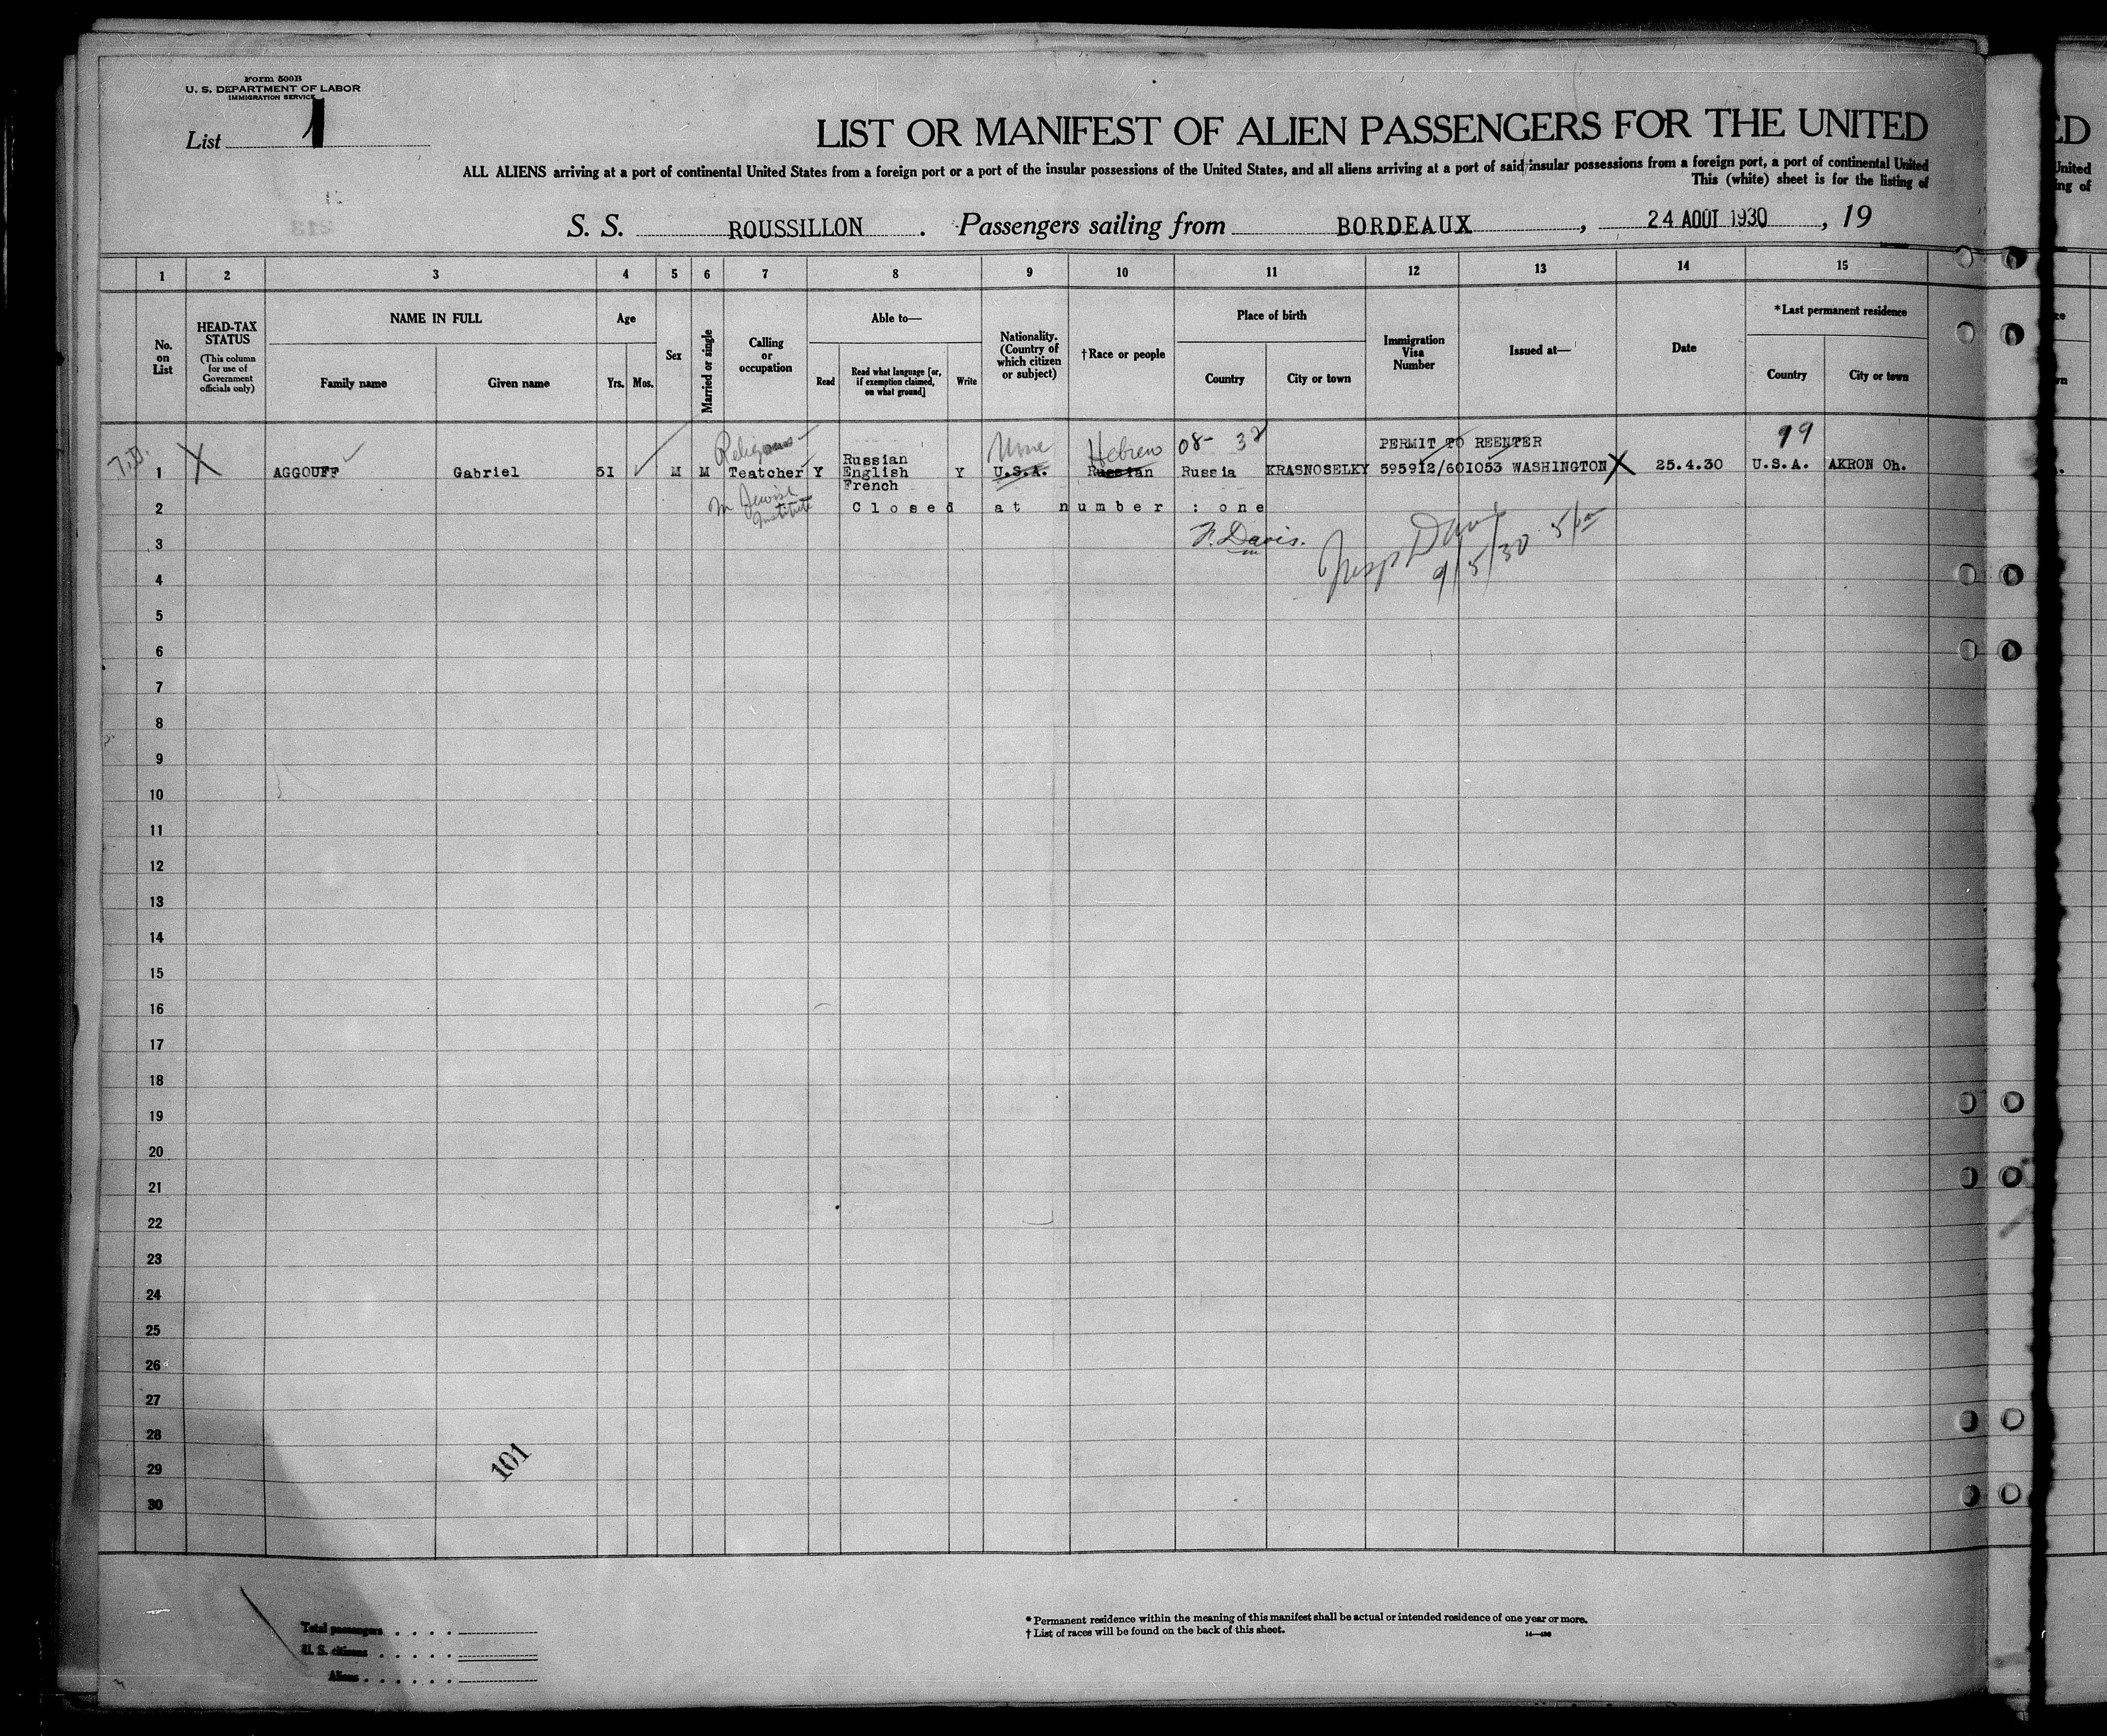 Form 500B
U. S. DEPARTMENT OF LABOR
IMMIGRATION SERVICE
List 1
LIST OR MANIFEST OF ALIEN PASSENGERS FOR THE UNITED
ALL ALIENS arriving at a port of continental United States from a foreign port or a port of the insular possessions of the United States, and all aliens arriving at a port of said insular possessions from a foreign port, a port of continental United
This (white) sheet is for the listing of
S. S. ROUSSILLON . Passengers sailing from BORDEAUX , 24 AOUT 1930 , 19
1 2 3 4 5 6 7 8 9 10 11 12 13 14 15
No. on List
HEAD-TAX STATUS
(This column for use of Government officials only)
NAME IN FULL
Family name
Given name
Age
Yrs. Mos.
Sex
Married or single
Calling or occupation
Able to—
Read
Read what language [or, if exemption claimed, on what ground]
Write
Nationality. (Country of which citizen or subject)
†Race or people
Place of birth
Country
City or town
Immigration Visa Number
Issued at—
Date
*Last permanent residence
Country
City or town
Religious Hebrew 08- 32 PERMIT TO REENTER 99
Russian
1 AGGOUFF Gabriel 51 M M Teatcher Y English Y U.S.A. Russian Russia KRASNOSELKY 595912/601053 WASHINGTON X 25.4.30 U.S.A. AKRON Oh.
French
in Jewish Institute
2 Closed at number : one
3 F. Davis.
9/5/30 5 pm
4
5
6
7
8
9
10
11
12
13
14
15
16
17
18
19
20
21
22
23
24
25
26
27
28
29
30
101
Total passengers
U. S. citizens
Aliens
* Permanent residence within the meaning of this manifest shall be actual or intended residence of one year or more.
† List of races will be found on the back of this sheet.